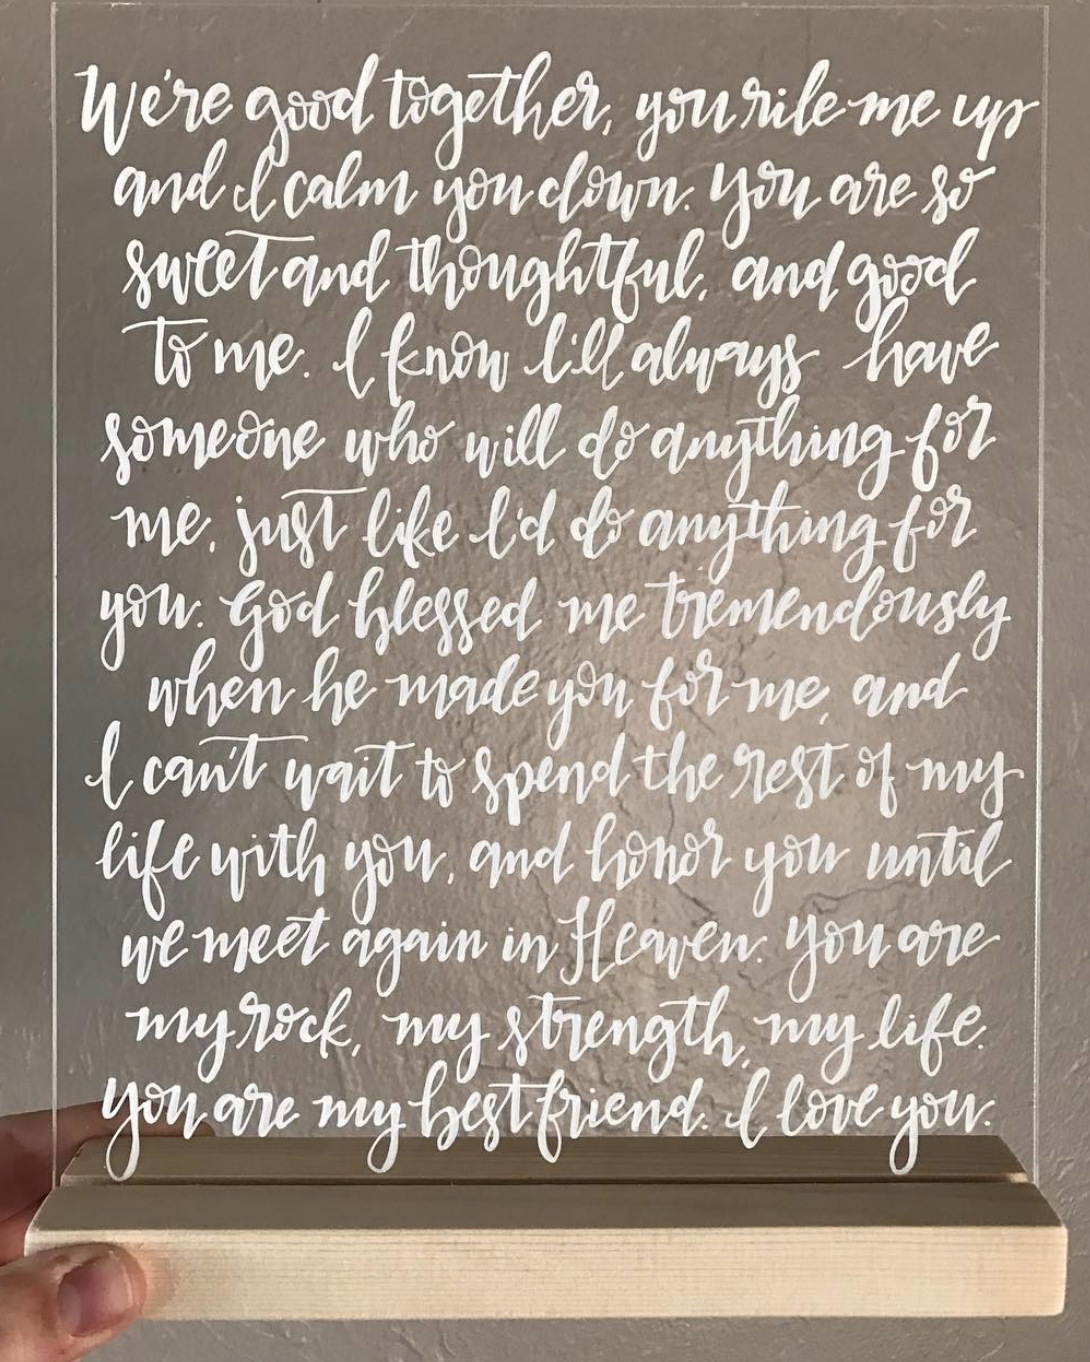 We're good together, you rile me up
and I calm you down. You are so
sweet and thoughtful, and good
to me. I know I'll always have
someone who will do anything for
me, just like I'd do anything for
you. God blessed me tremendously
when he made you for me, and
I can't wait to spend the rest of my
life with you, and honor you until
we meet again in Heaven. You are
my rock, my strength, my life.
You are my best friend. I love you.